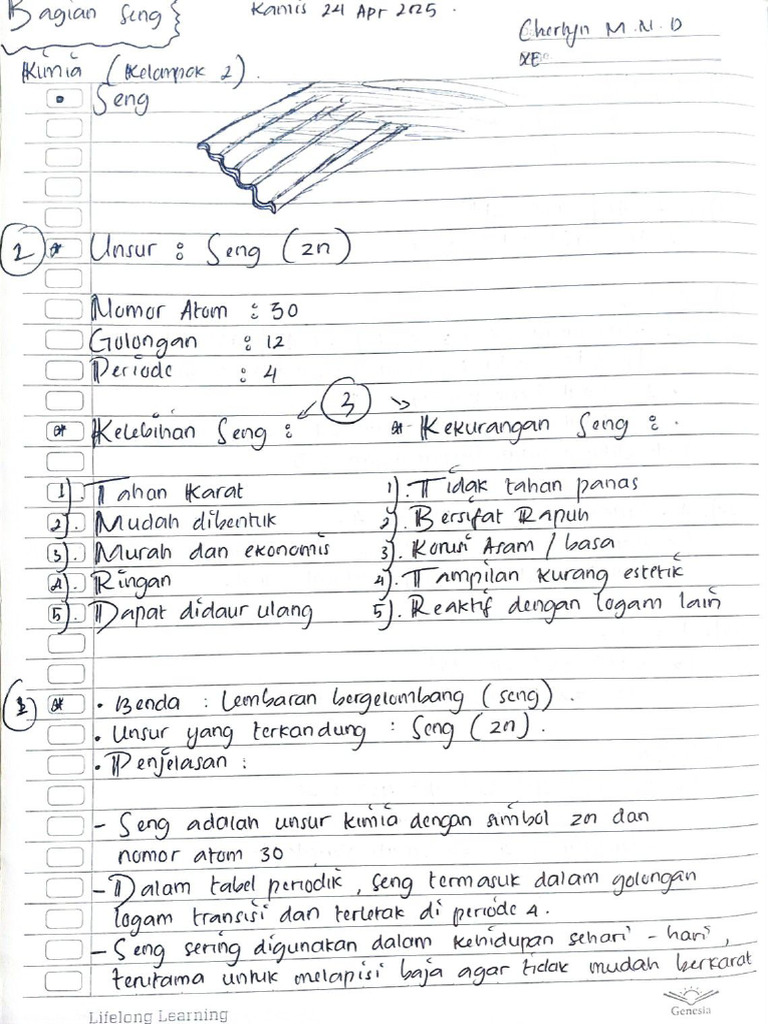 Bagian Seng
Kamis 24 Apr 2025.
Cherlyn M.N.D
XE
Kimia (Kelompok 2).
• Seng
2 * Unsur : Seng (Zn)
Nomor Atom : 30
Golongan : 12
Periode : 4
3
* Kelebihan Seng : * Kekurangan Seng : .
1). Tahan Karat 1). Tidak tahan panas
2). Mudah dibentuk 2). Bersifat Rapuh
3). Murah dan ekonomis 3). Korusi Asam / basa
4). Ringan 4). Tampilan kurang estetik
5). Dapat didaur ulang 5). Reaktif dengan logam lain
* • Benda : Lembaran bergelombang (seng).
• Unsur yang terkandung : Seng (Zn).
• Penjelasan :
- Seng adalah unsur kimia dengan simbol Zn dan
nomor atom 30
- Dalam tabel periodik, seng termasuk dalam golongan
logam transisi dan terletak di periode 4.
- Seng sering digunakan dalam kehidupan sehari - hari,
terutama untuk melapisi baja agar tidak mudah berkarat
Lifelong Learning
Genesia